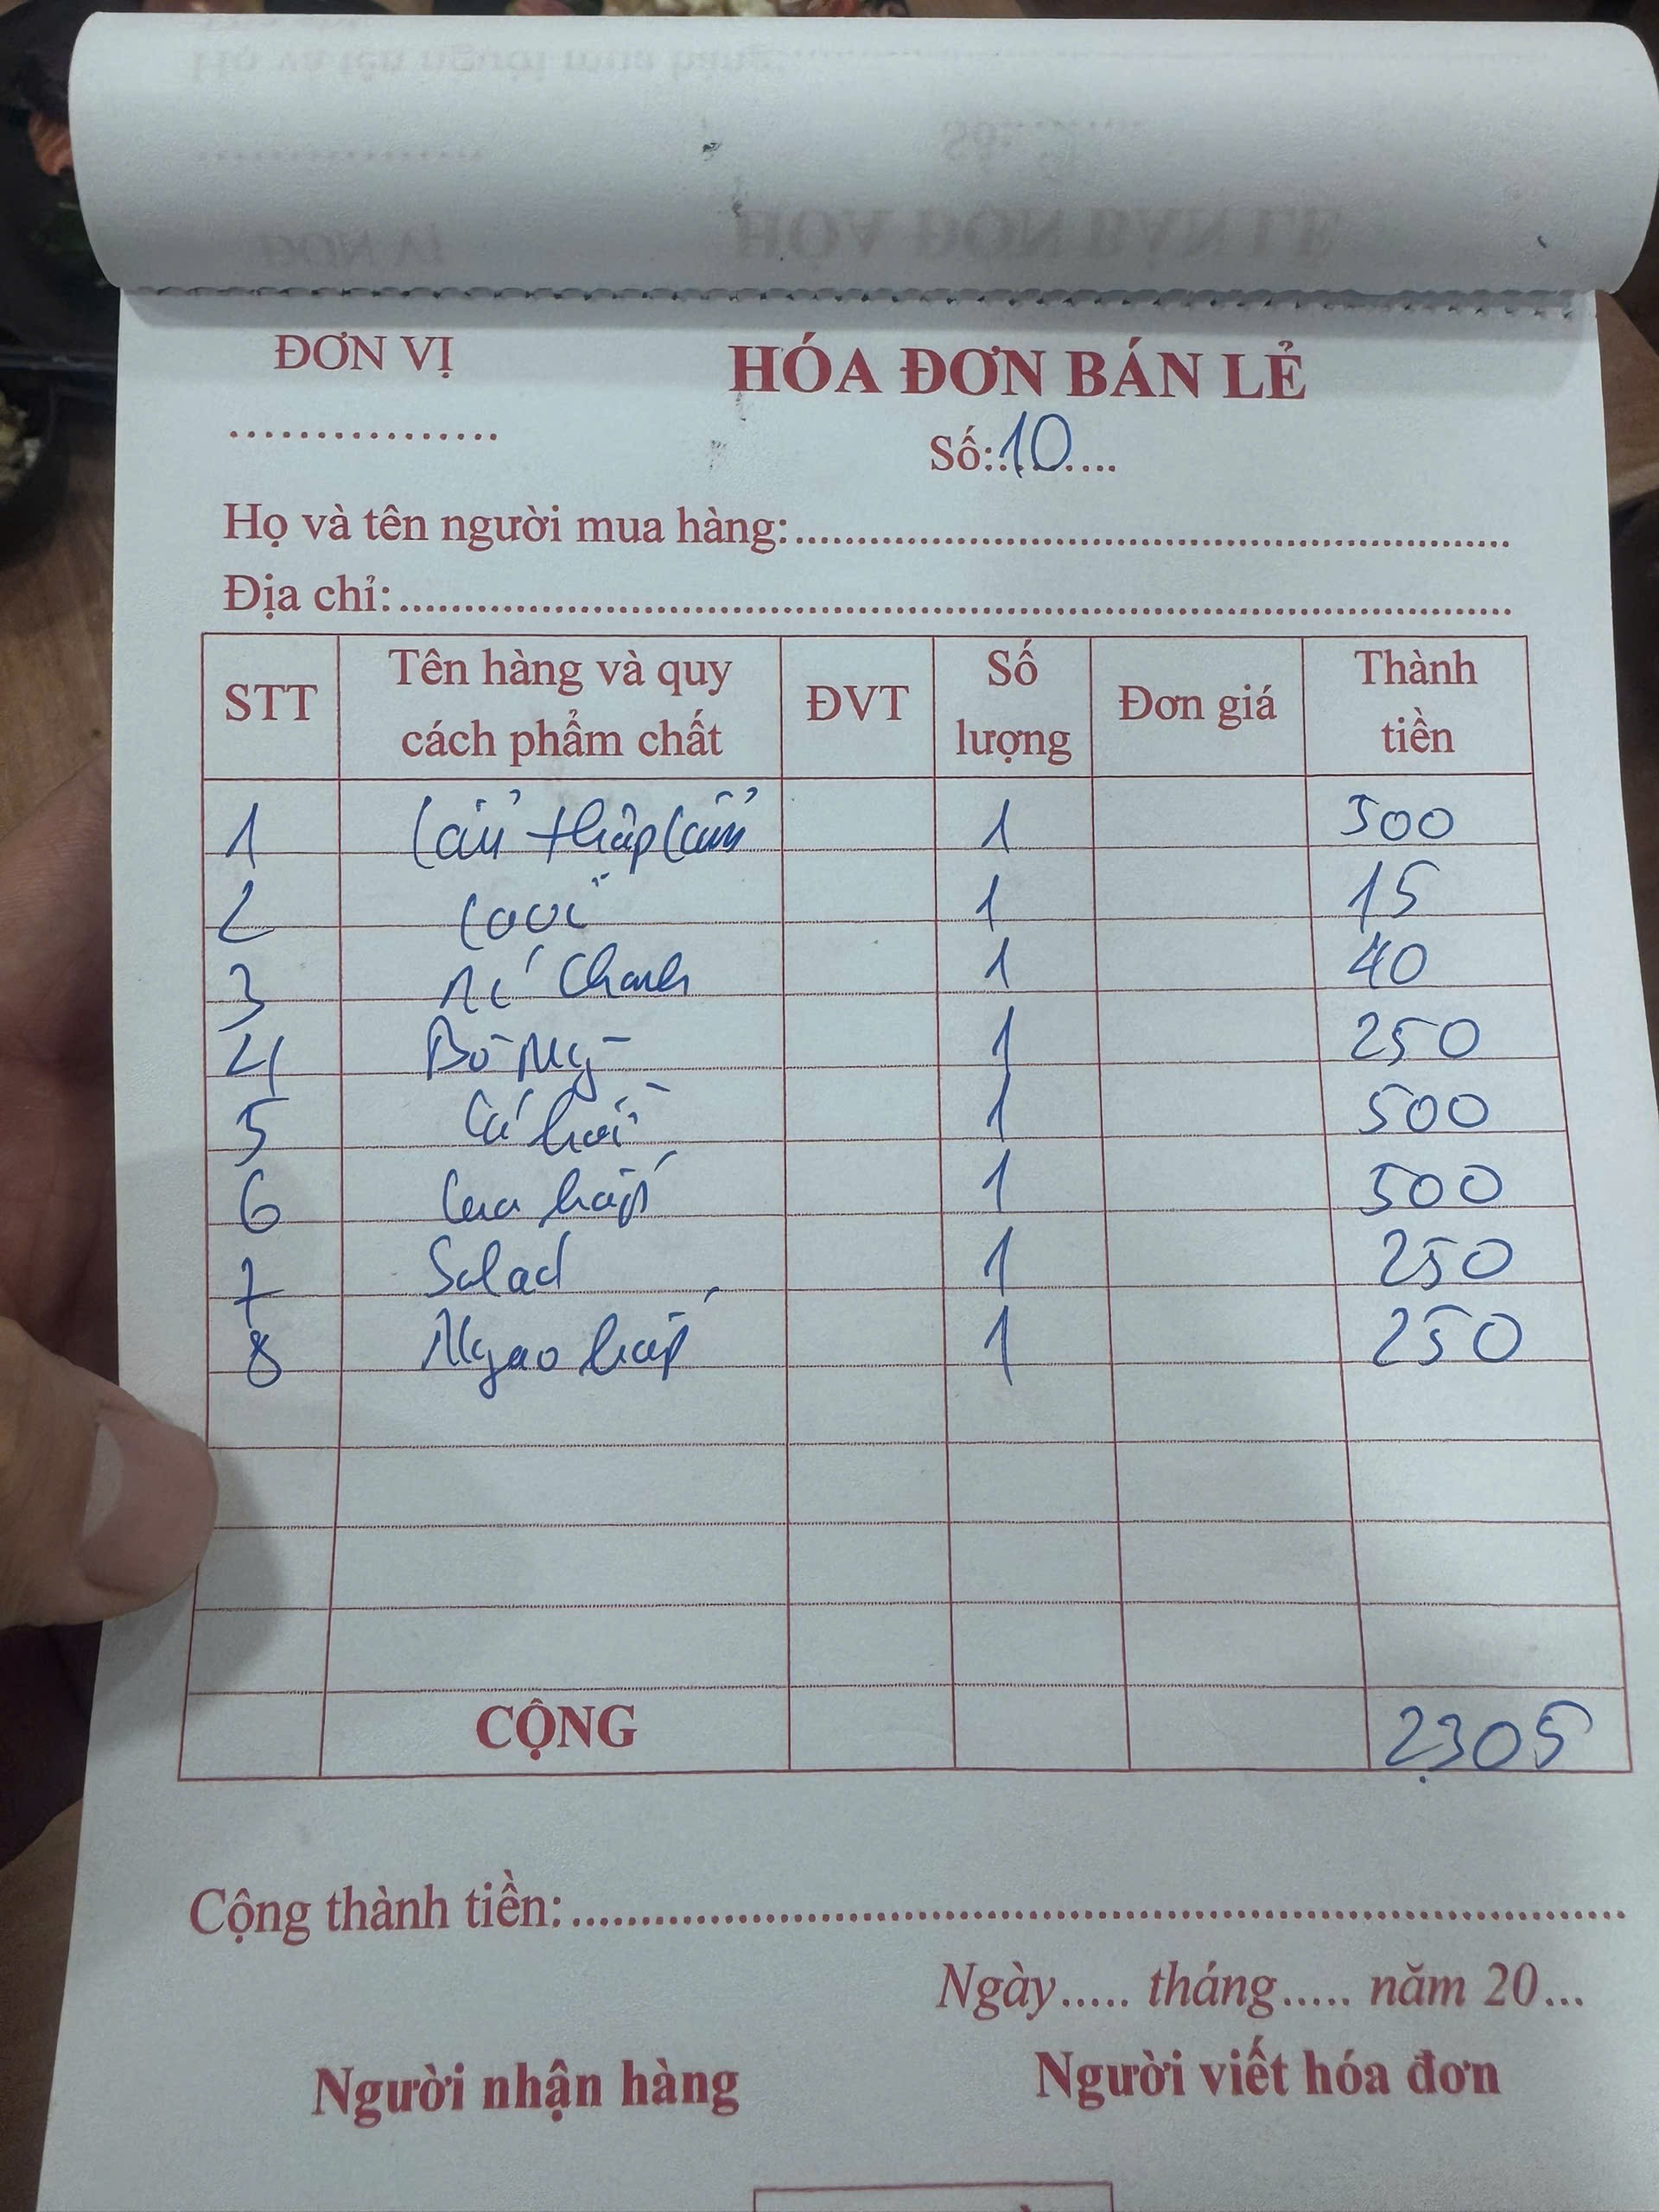 ĐƠN VỊ
HÓA ĐƠN BÁN LẺ
Số: 10
Họ và tên người mua hàng:
Địa chỉ:
STT Tên hàng và quy cách phẩm chất ĐVT Số lượng Đơn giá Thành tiền
1 Lẩu thập cẩm 1 500
2 1 15
3 chanh 1 40
4 Bò Mỹ 1 250
5 Cá hồi 1 500
6 Cua hấp 1 500
7 Salad 1 250
8 Ngao hấp 1 250
CỘNG 2305
Cộng thành tiền:
Ngày..... tháng..... năm 20...
Người nhận hàng Người viết hóa đơn